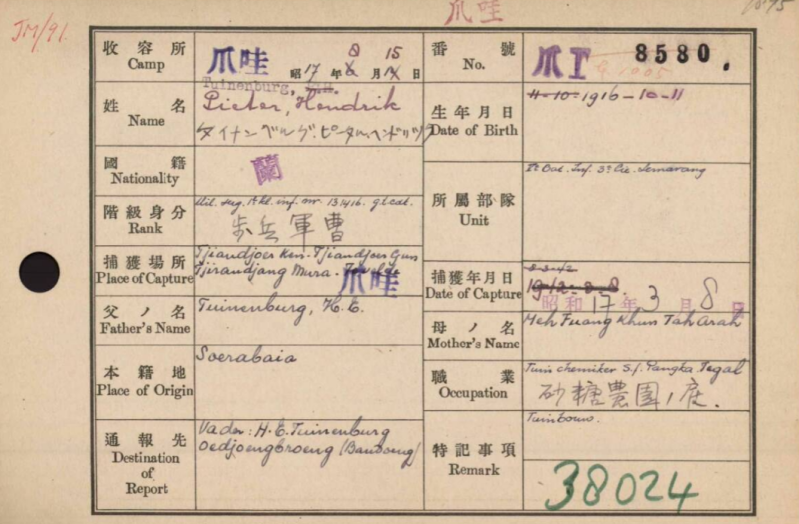 爪哇
JM/91.
收容所 Camp 爪哇 昭17年8月15日
番號 No. 爪I 8580.
姓名 Name Tuinenburg,
Pieter, Hendrik
タイナンベルグ.ピーター.ヘンドリック
生年月日 Date of Birth 11-10-1916-10-11
國籍 Nationality 蘭
階級身分 Rank Mil. Sgt. Akl. inf. nr. 131416.
歩兵軍曹
所屬部隊 Unit Inf. 3e Cie. Semarang
捕獲場所 Place of Capture Tjiandjoer Tjiandjoer
Tjirandjang 爪哇
捕獲年月日 Date of Capture 8-3-42
1942-3-8.
昭和17年3月8日
父ノ名 Father's Name Tuinenburg, H.E.
母ノ名 Mother's Name Meh Fuang Khun Tah Arah
本籍地 Place of Origin Soerabaia
職業 Occupation Tuin chemiker s/f. Pangka Tegal
砂糖農園ノ
通報先 Destination of Report Vader: H.E. Tuinenburg
Oedjoengbroeng (Bandoeng)
特記事項 Remark Tuinbouw.
38024